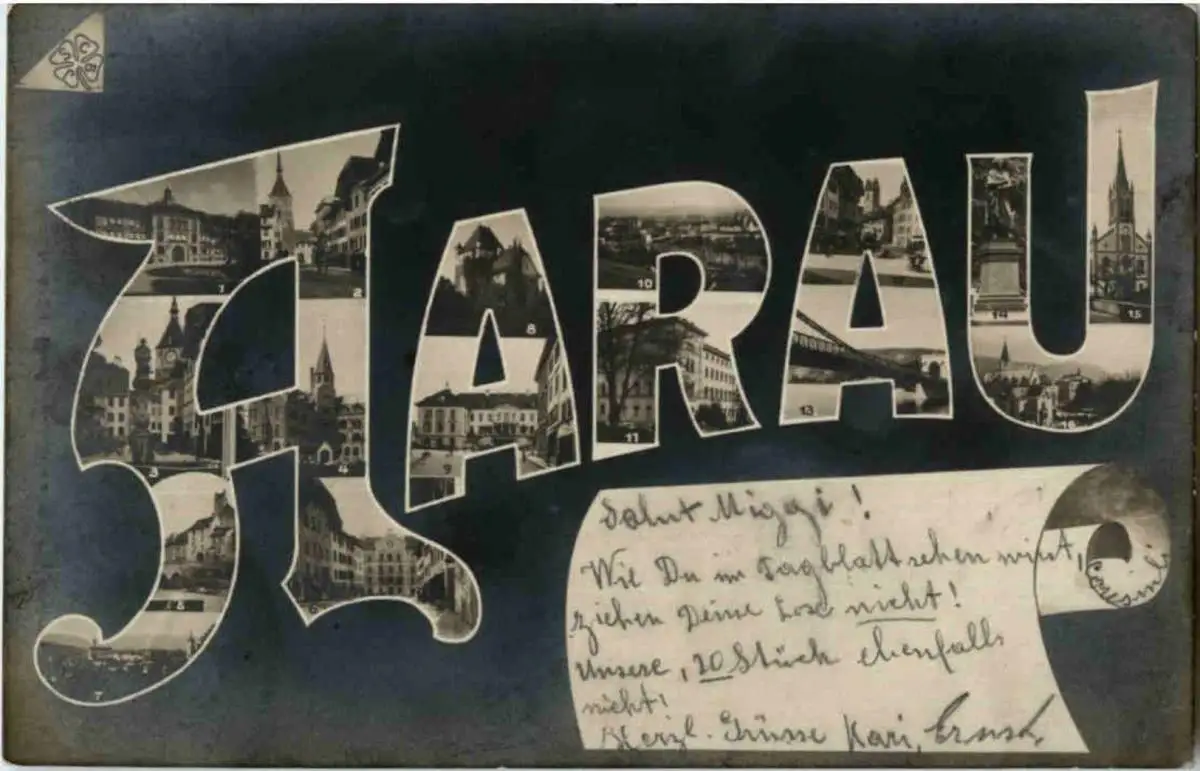 AARAU
1 2
3 4
5
6
7
8
9
10
11
13
14 15
16
Salut Miggi!
Wie Du im Tagblatt sehen wirst,
ziehen Deine Lose nicht!
Unsere, 20 Stück ebenfalls
nicht!
Herzl. Grüsse Kari, Ernst